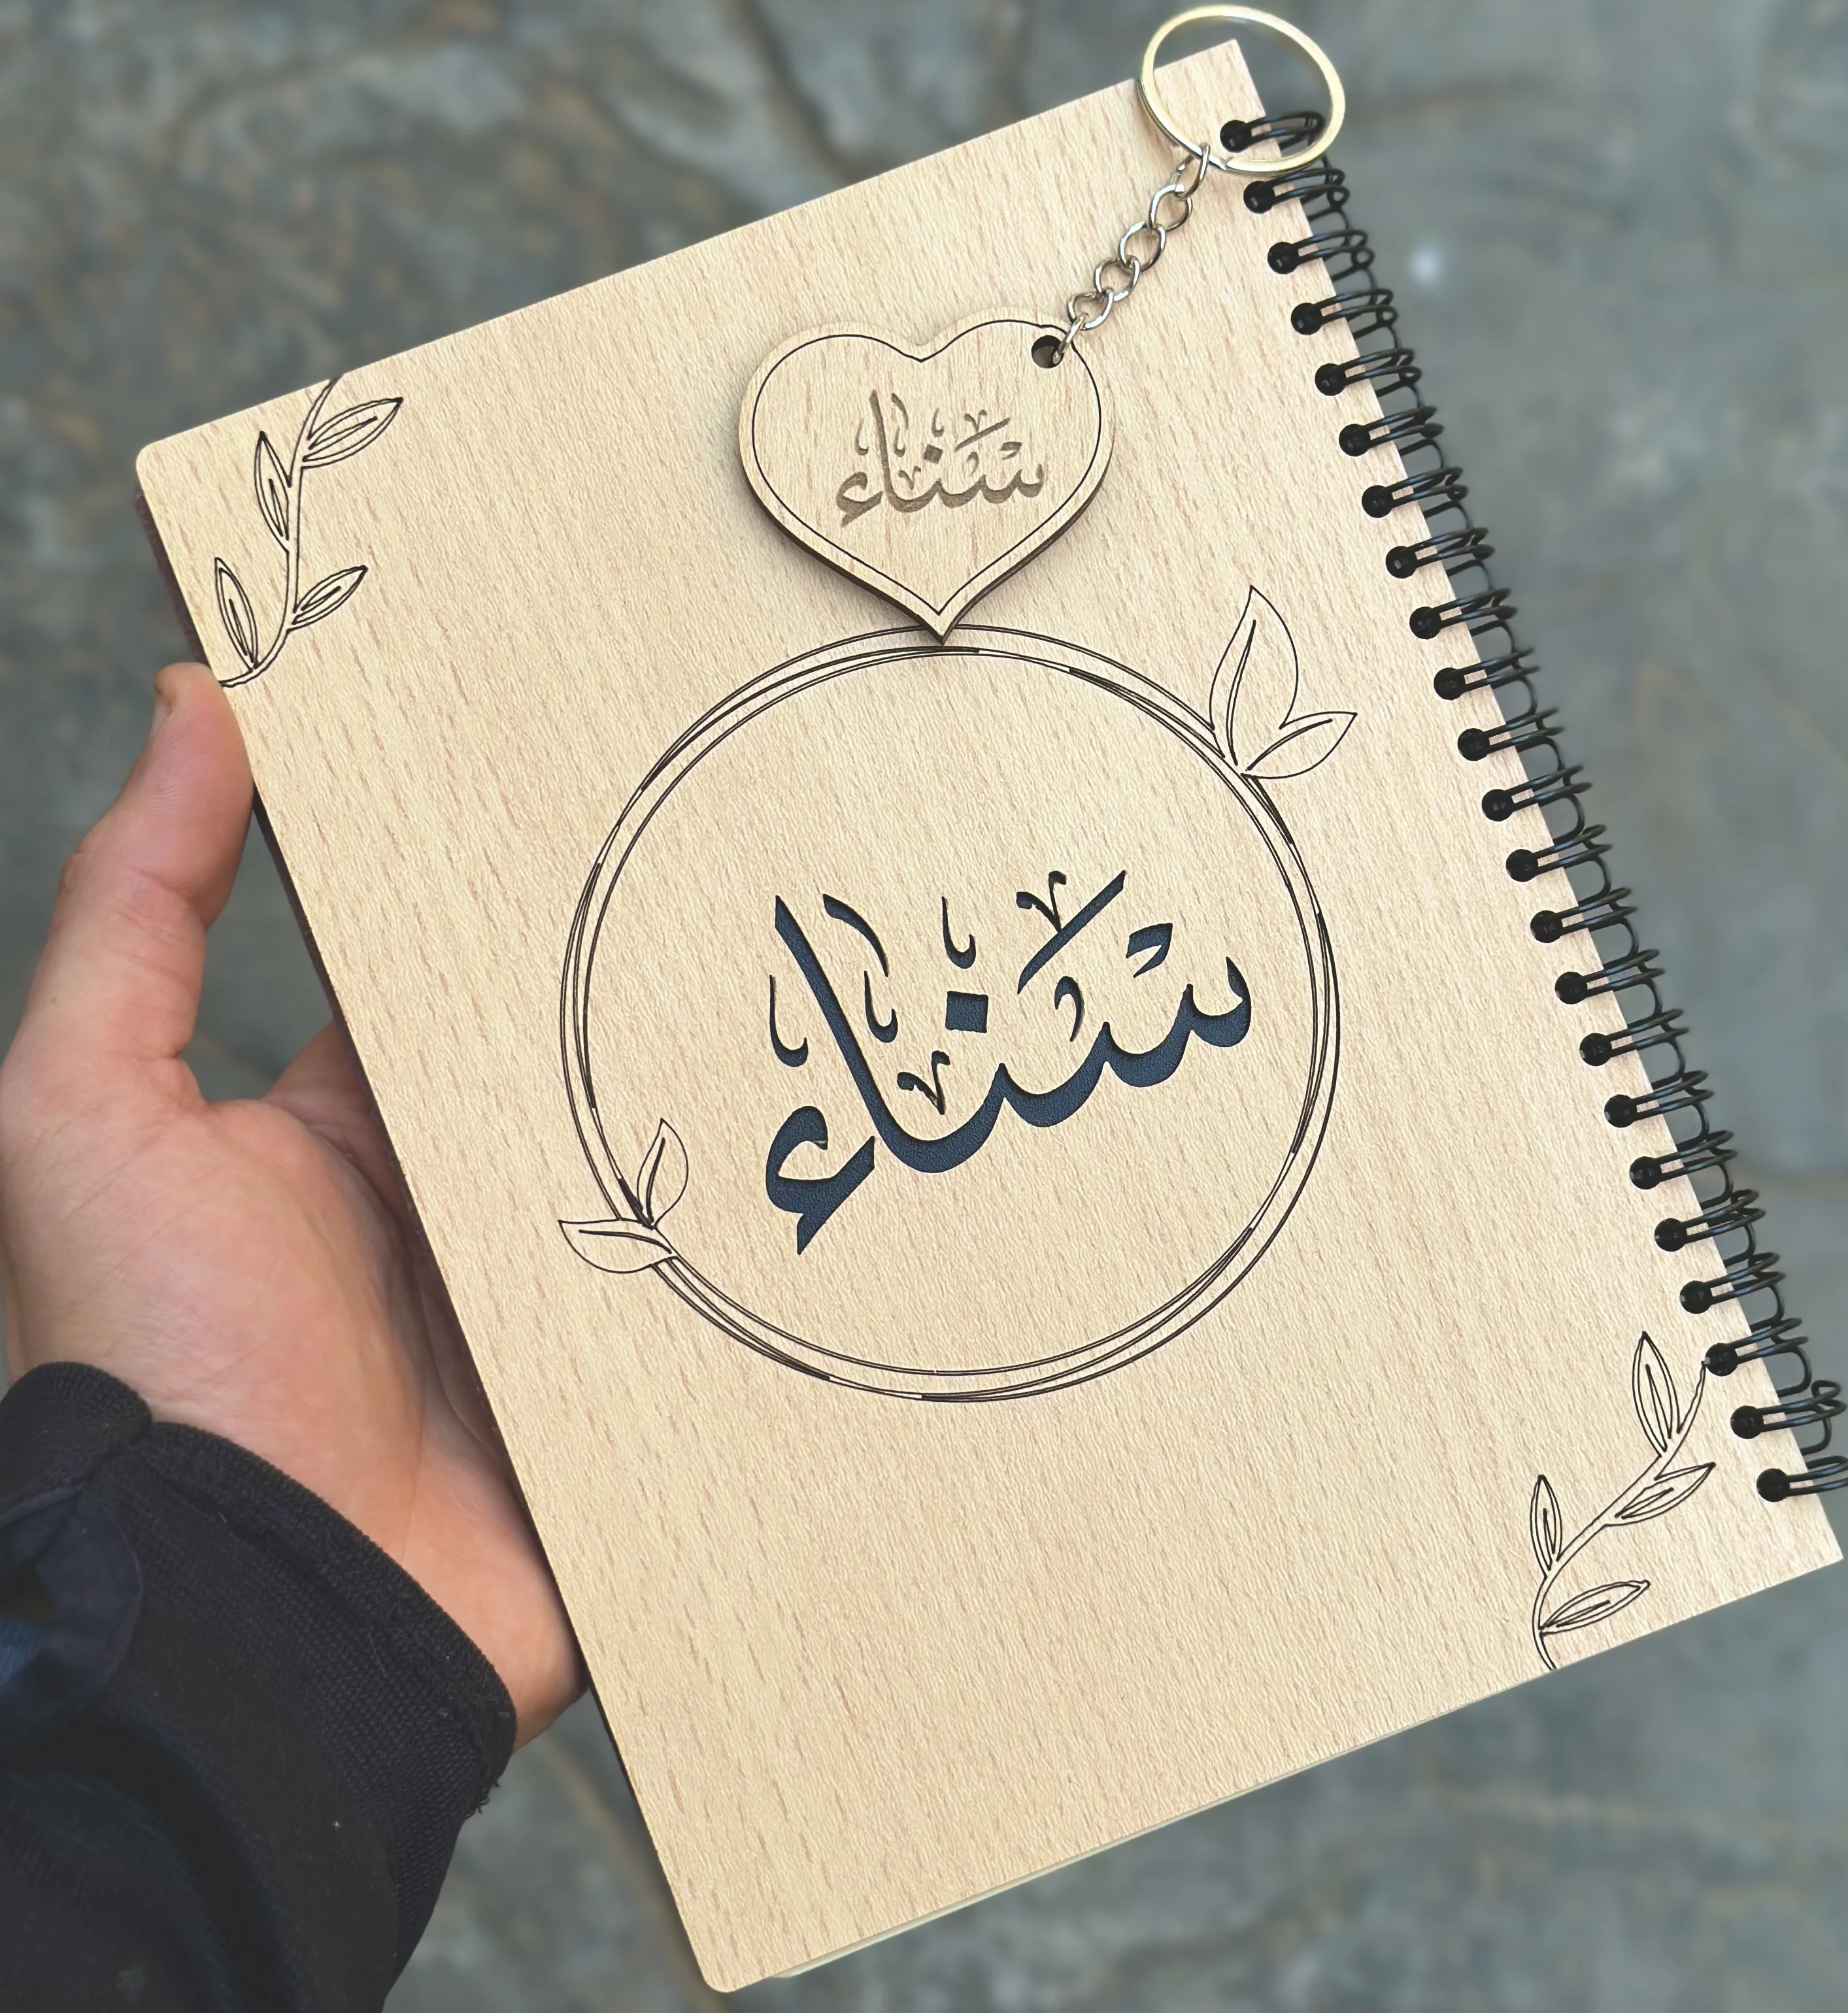 سناء
سناء